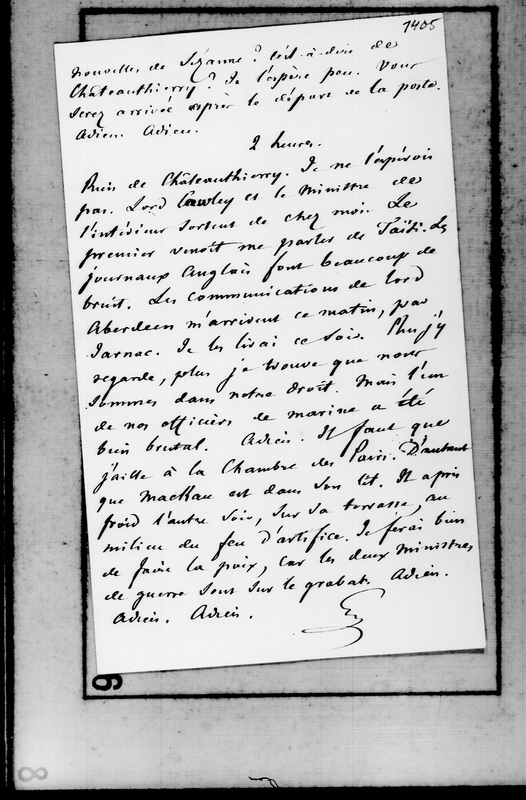 1405
nouvelles de Sézanne ? C'est-à-dire de
Châteauthierry ? Je l'espère peu. Vous
serez arrivée après le départ de la poste.
Adieu. Adieu.
2 heures.
Rien de Châteauthierry. Je ne l'espérois
pas. Lord Cowley et le Ministre de
l'intérieur sortent de chez moi. Le
premier venoit me parler de Taïti. Les
journaux Anglais font beaucoup de
bruit. Les communications de lord
Aberdeen m'arrivent ce matin, par
Jarnac. Je les lirai ce soir. Plus j'y
regarde, plus je trouve que nous
sommes dans notre droit. Mais l'un
de nos officiers de marine a été
bien brutal. Adieu. Il faut que
j'aille à la Chambre des Pairs. D'autant
que Mackau est dans son lit. Il a pris
froid l'autre soir, sur sa terrasse, au
milieu du feu d'artifice. Je ferai bien
de faire la paix, car les deux ministres
de guerre sont sur le grabat. Adieu.
Adieu. Adieu.
9
8